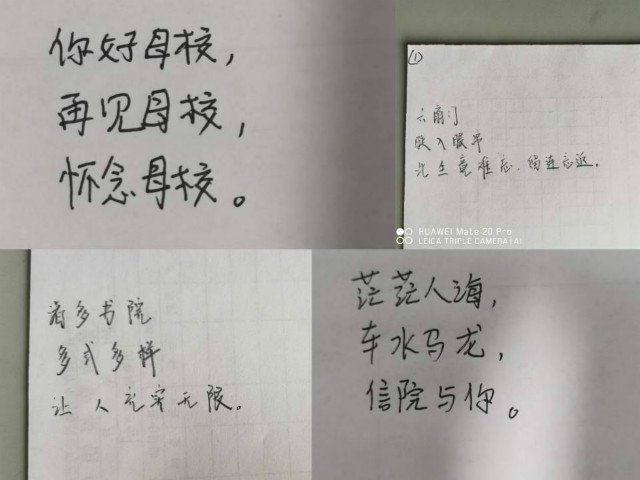 你好母校，
再见母校，
怀念母校。
①
云南门
收入眼帘
忘，留连忘返。
HUAWEI Mate 20 Pro
LEICA TRIPLE CAMERA | AI
多书院
多式多样
让人充实无限。
茫茫人海，
车水马龙，
信院与你。